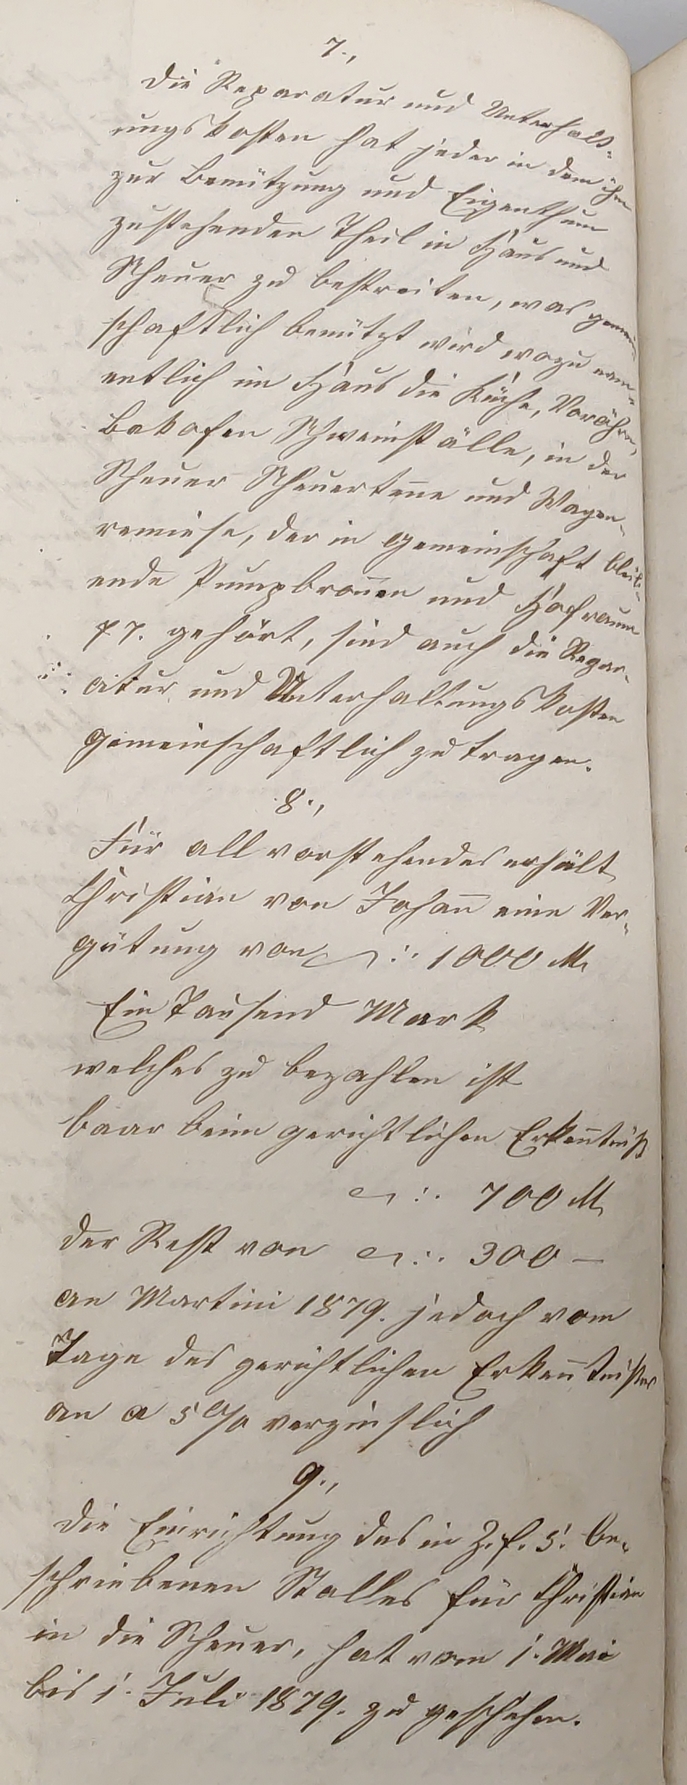 7.,
Die Reparatur und Unterhalt-
ungskosten hat jeder in dem ihm
zur Benützung und Eigenthum
zustehenden Theil in Haus und
Scheuer zu bestreiten, was gemein-
schaftlich benützt wird wozu nam-
entlich im Haus die Küche, Voröhrn,
Bakofen Schweinställe, in der
Scheuer Scheuertenne und Wagen-
remiese, der in Gemeinschaft bleib-
ende Pumpbronnen und Hofraum
pp. gehört, sind auch die Repar-
atur und Unterhaltungskosten
gemeinschaftlich zu tragen.
8.,
Für all vorstehendes erhält
Christian von Johann eine Ver-
gütung von 1000 M
Ein Tausend Mark
welches zu bezahlen ist
baar beim gerichtlichen Erkenntniß
700 M
der Rest von 300 —
an Martini 1879. jedoch vom
Tage des gerichtlichen Erkenntnisses
an a 5 % verzinslich
9.,
Die Einrichtung des in Z.f. 5. be-
schriebenen Stalles für Christian
in die Scheuer, hat vom 1. Mai
bis 1. Juli 1879. zu geschehen.